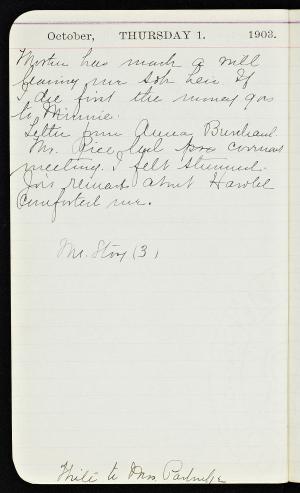 October, THURSDAY 1. 1903.
Morton has made a will
leaving me sole heir If
I die first the money goes
to Minnie.
Letter from Anna
Mr. Rice led
meeting. I felt stunned.
remark about
Comforted me.
Mr. Story (3)
Write to Mrs.